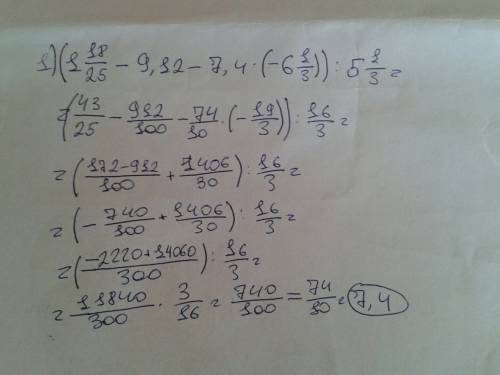 1) (1 18/25 - 9,12 - 7,4 · (-6 1/3)) : 5 1/3 =
= (43/25 - 912/100 - 74/10 · (-19/3)) : 16/3 =
= (172-912/100 + 1406/30) : 16/3 =
= (- 740/100 + 1406/30) : 16/3 =
= (-2220+14060/300) : 16/3 =
= 11840/300 · 3/16 = 740/100 = 74/10 = 7,4